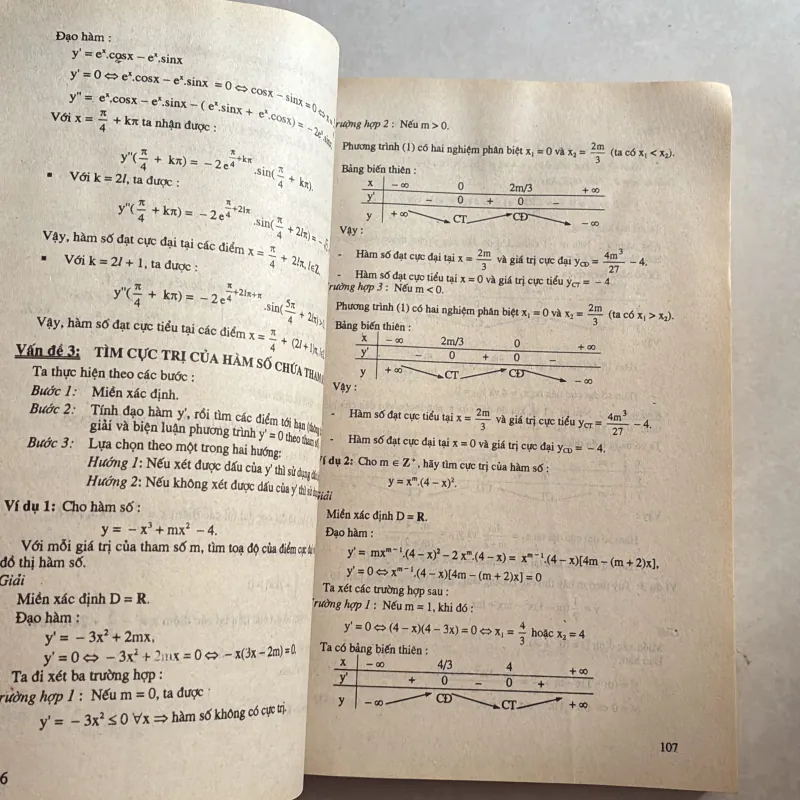 Đạo hàm :
y' = eˣ.cosx – eˣ.sinx
y' = 0 ⇔ eˣ.cosx – eˣ.sinx = 0 ⇔ cosx – sinx = 0 ⇔
y'' = eˣ.cosx – eˣ.sinx – ( eˣ.sinx + eˣ.cosx) = – 2eˣ.sinx
Với x = π/4 + kπ ta nhận được :
y''(π/4 + kπ) = – 2e^(π/4+kπ).sin(π/4 + kπ).
▪ Với k = 2l, ta được :
y''(π/4 + kπ) = – 2e^(π/4+2lπ).sin(π/4 + 2lπ) = –
Vậy, hàm số đạt cực đại tại các điểm x = π/4 + 2lπ, l∈Z.
▪ Với k = 2l + 1, ta được :
y''(π/4 + kπ) = – 2e^(π/4+2lπ+π).sin(5π/4 + 2lπ) >
Vậy, hàm số đạt cực tiểu tại các điểm x = π/4 + (2l+1)π,
Vấn đề 3: TÌM CỰC TRỊ CỦA HÀM SỐ CHỨA THAM
Ta thực hiện theo các bước :
Bước 1: Miền xác định.
Bước 2: Tính đạo hàm y', rồi tìm các điểm tới hạn
giải và biện luận phương trình y' = 0 theo tham số
Bước 3: Lựa chọn theo một trong hai hướng:
Hướng 1: Nếu xét được dấu của y' thì sử dụng
Hướng 2: Nếu không xét được dấu của y' thì sử
Ví dụ 1: Cho hàm số :
y = – x³ + mx² – 4.
Với mỗi giá trị của tham số m, tìm toạ độ của điểm cực
đồ thị hàm số.
Giải
Miền xác định D = R.
Đạo hàm :
y' = – 3x² + 2mx,
y' = 0 ⇔ – 3x² + 2mx = 0 ⇔ – x(3x – 2m) = 0.
Ta đi xét ba trường hợp :
rường hợp 1 : Nếu m = 0, ta được
y' = – 3x² ≤ 0 ∀x ⇒ hàm số không có cực trị.
6
rường hợp 2 : Nếu m > 0.
Phương trình (1) có hai nghiệm phân biệt x₁ = 0 và x₂ = 2m/3 (ta có x₁ < x₂).
Bảng biến thiên :
x – ∞ 0 2m/3 + ∞
y' – 0 + 0 –
y + ∞ CT CĐ – ∞
Vậy :
- Hàm số đạt cực đại tại x = 2m/3 và giá trị cực đại y_CĐ = 4m³/27 – 4.
- Hàm số đạt cực tiểu tại x = 0 và giá trị cực tiểu y_CT = – 4
rường hợp 3 : Nếu m < 0.
Phương trình (1) có hai nghiệm phân biệt x₁ = 0 và x₂ = 2m/3 (ta có x₁ > x₂).
Bảng biến thiên :
x – ∞ 2m/3 0 + ∞
y' – 0 + 0 –
y + ∞ CT CĐ – ∞
Vậy :
- Hàm số đạt cực tiểu tại x = 2m/3 và giá trị cực tiểu y_CT = 4m³/27 – 4.
- Hàm số đạt cực đại tại x = 0 và giá trị cực đại y_CĐ = – 4.
í dụ 2: Cho m ∈ Z⁺, hãy tìm cực trị của hàm số :
y = xᵐ.(4 – x)².
iải
Miền xác định D = R.
Đạo hàm :
y' = mxᵐ⁻¹.(4 – x)² – 2 xᵐ.(4 – x) = xᵐ⁻¹.(4 – x)[4m – (m + 2)x],
y' = 0 ⇔ xᵐ⁻¹.(4 – x)[4m – (m + 2)x] = 0
Ta xét các trường hợp sau :
rường hợp 1 : Nếu m = 1, khi đó :
y' = 0 ⇔ (4 – x)(4 – 3x) = 0 ⇔ x₁ = 4/3 hoặc x₂ = 4
Ta có bảng biến thiên :
x – ∞ 4/3 4 + ∞
y' + 0 – 0 +
y – ∞ CĐ CT + ∞
107